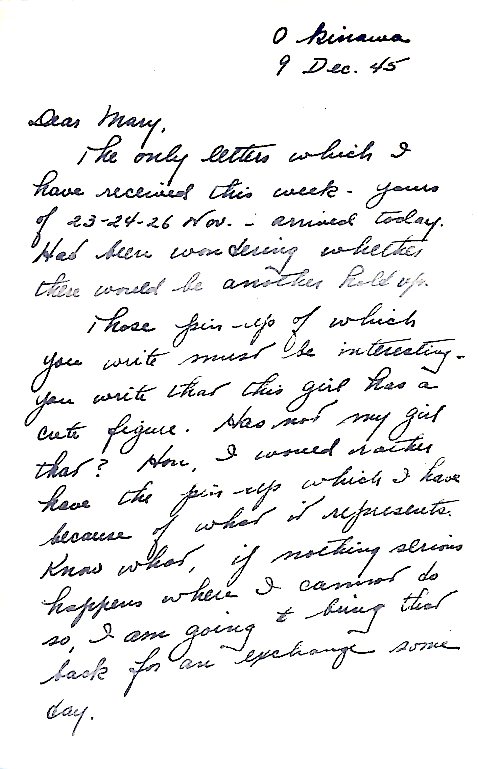 Okinawa
9 Dec. 45
Dear Mary,
The only letters which I
have received this week - yours
of 23-24-26 Nov. - arrived today.
Had been wondering whether
there would be another hold up.
Those pin-up of which
you write must be interesting -
you write that this girl has a
cute figure. Has not my girl
that? Hon, I would rather
have the pin-up which I have
because of what it represents.
Know what, if nothing serious
happens where I cannot do
so, I am going to bring that
back for an exchange some
day.